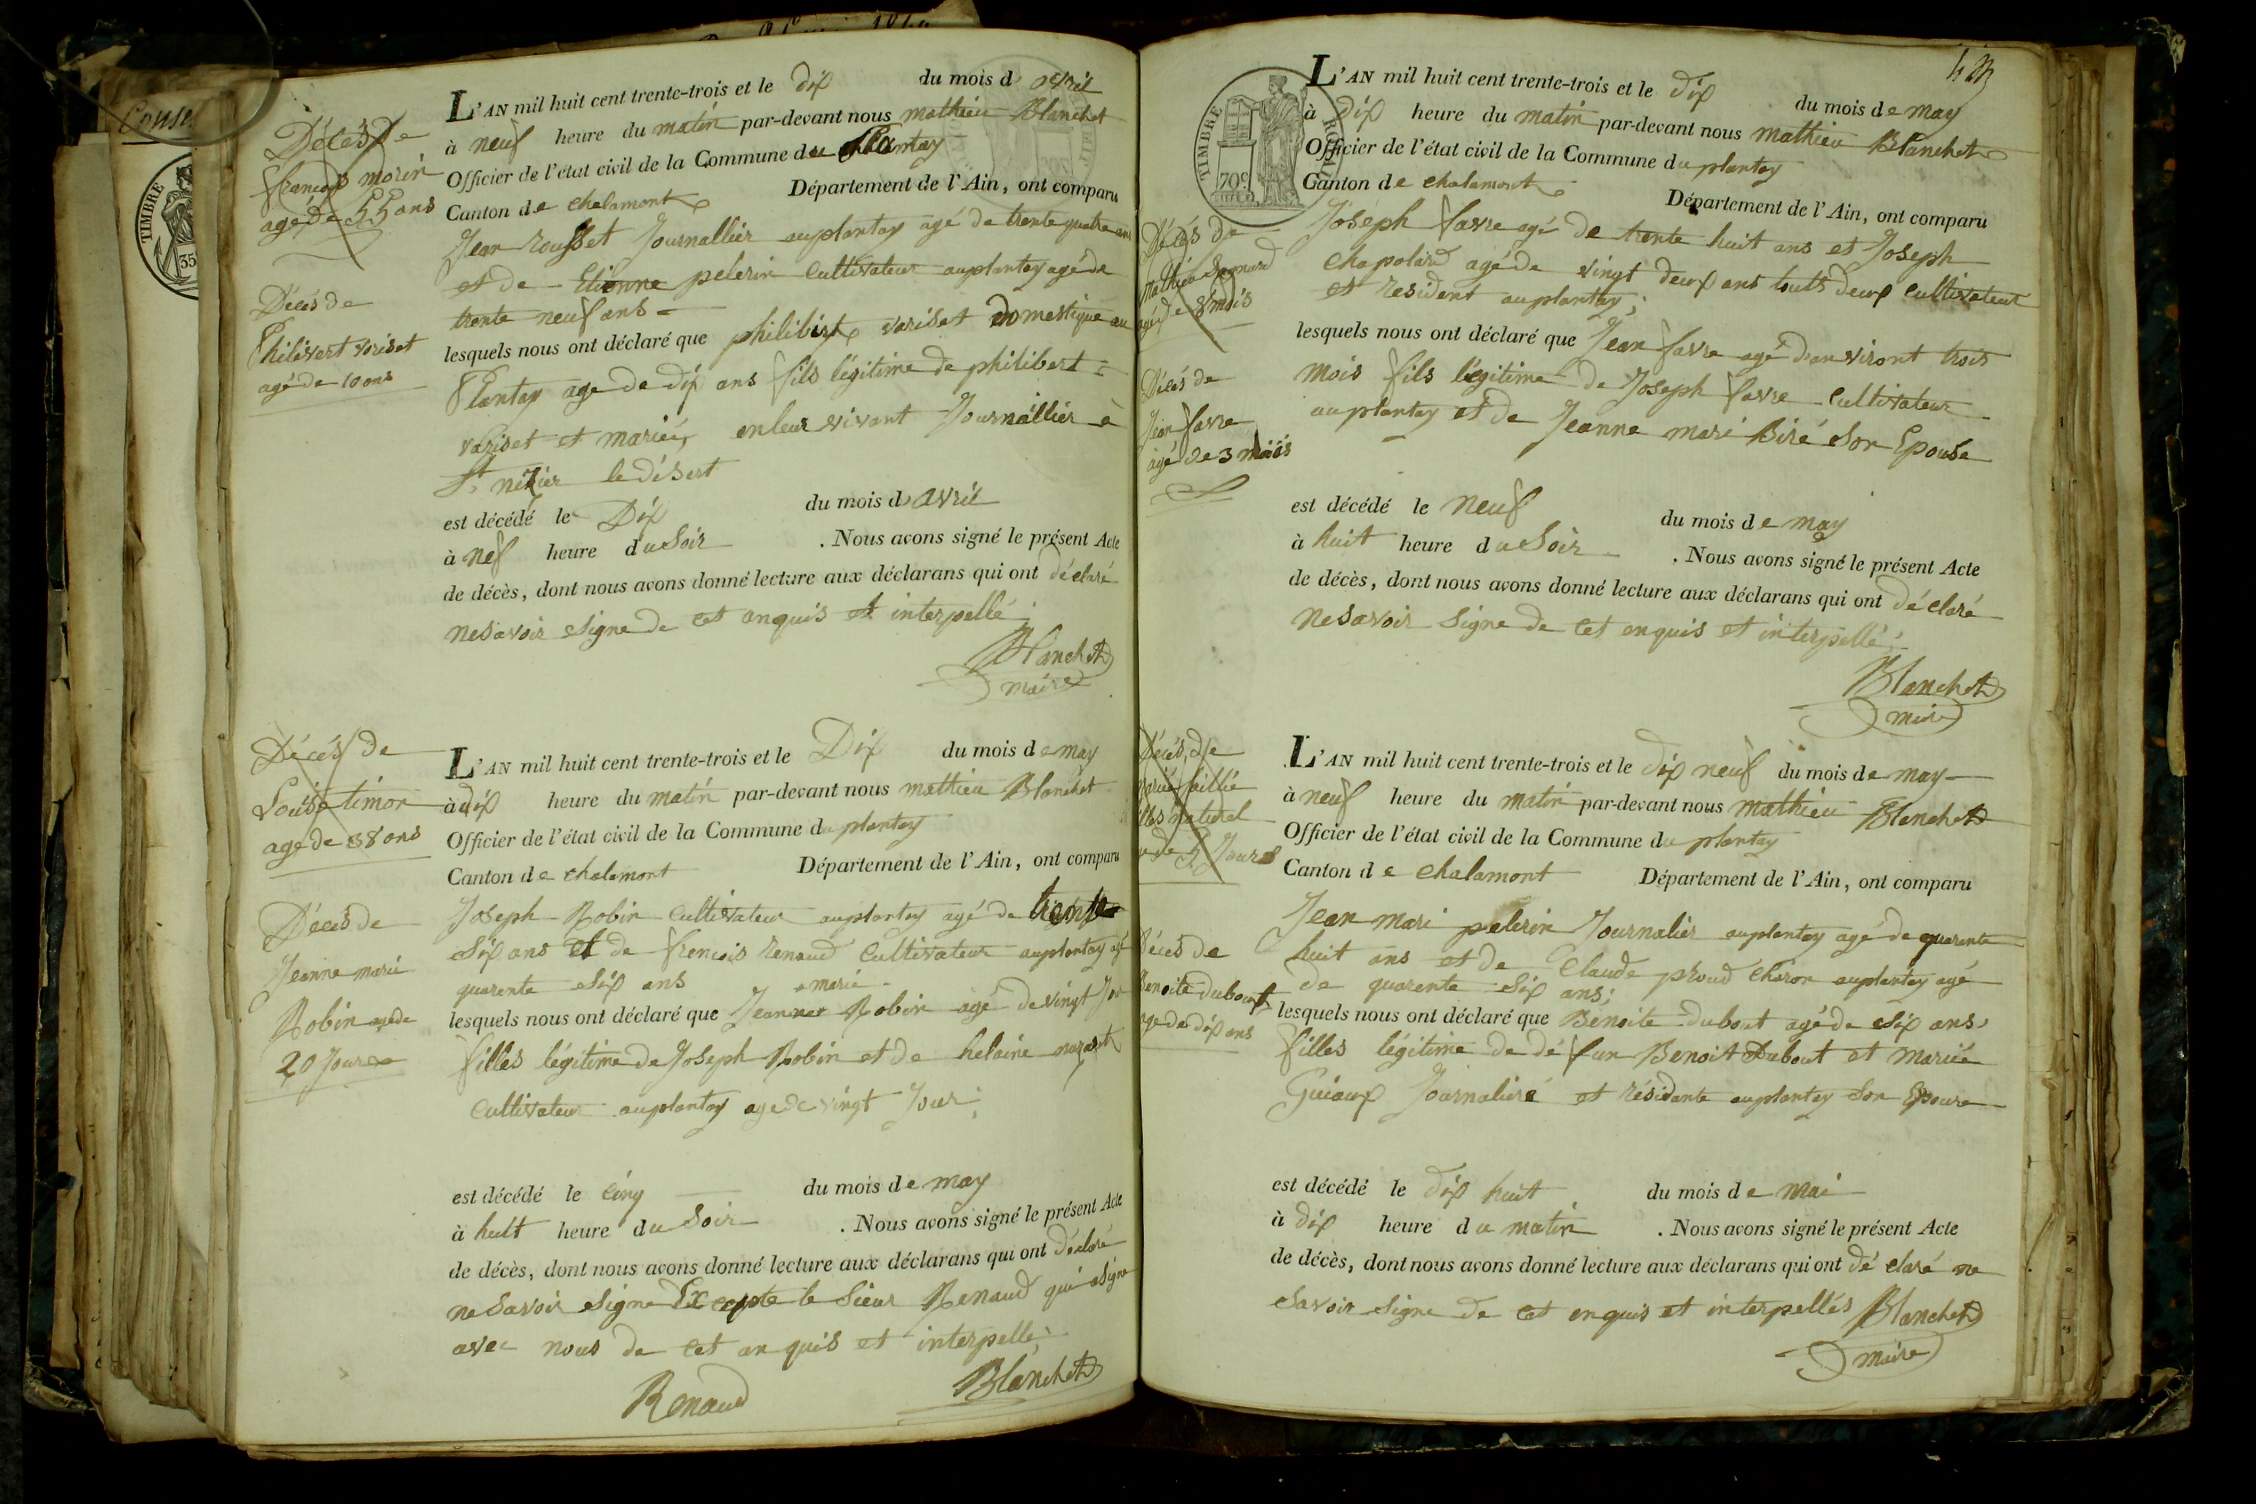 Décès de
françois morin
agé de 55 ans
Décès de
Philivert variset
agé de 10 ans
L'AN mil huit cent trente-trois et le dix du mois d avril
à neuf heure du matin par-devant nous mathieu Blanchet
Officier de l'état civil de la Commune du Plantay
Canton de chalamont Département de l'Ain, ont comparu
Jean rousset Journallier auplantay agé de trente quatre ans
et de Etienne pelerin cultivateur auplantay agé de
trente neuf ans
lesquels nous ont déclaré que philibert variset domestique au
Plantay age de dix ans fils légitime de philibert
variset et marieé, enleur vivant Journallier à
St nizier le désert
est décédé le Dix du mois d avril
à nef heure du Soir . Nous avons signé le présent Acte
de décès, dont nous avons donné lecture aux déclarans qui ont déclaré
nesavoir signe de cet anquis et interpellé
Blanchet
maire
Décés de
Louise timon
age de 38 ans
Décès de
Jeanne marie
Robin agede
20 Jours
L'AN mil huit cent trente-trois et le Dix du mois de may
à dix heure du matin par-devant nous mathieu Blanchet
Officier de l'état civil de la Commune du plantay
Canton de chalamont Département de l'Ain, ont comparu
Joseph Robin cultivateur auplantay agé de trente
Six ans et de francois renaud cultivateur auplantay agé
quarente six ans
marie
lesquels nous ont déclaré que Jeanne Robin agé de vingt Jour
filles légitime de Joseph Robin et de helaine
cultivateur auplantay age de vingt Jour
est décédé le cinq du mois de may
à huit heure du Soir . Nous avons signé le présent Acte
de décès, dont nous avons donné lecture aux déclarans qui ont déclaré
ne Savoir signe Excepte le Sieur Renaud qui signe
avec nous de cet anquis et interpelle
Renaud Blanchet
TIMBRE ROYAL
70c
L'AN mil huit cent trente-trois et le dix du mois de may
à dix heure du matin par-devant nous mathieu Blanchet
Officier de l'état civil de la Commune du plantay
Canton de chalamont Département de l'Ain, ont comparu
Décès de
Mathieu Bernard
agé de 8 mois
Décès de
Jean favre
agé de 3 mois
Joseph favre agé de trente huit ans et Joseph
chapolard agé de vingt deux ans touts deux cultivateur
et resident auplantay;
lesquels nous ont déclaré que Jean favre agé d'anviront trois
mois fils légitime de Joseph favre cultivateur
auplantay et de Jeanne mari Biré Son Epouse
est décédé le neuf du mois de may
à huit heure du Soir . Nous avons signé le présent Acte
de décès, dont nous avons donné lecture aux déclarans qui ont déclaré
nesavoir signe de cet enquis et interpellé
Blanchet
maire
Décès de
naturel
Jours
Décès de
Benoite dubout
age de dix ans
L'AN mil huit cent trente-trois et le dix neuf du mois de may
à neuf heure du matin par-devant nous mathieu Blanchet
Officier de l'état civil de la Commune du plantay
Canton de chalamont Département de l'Ain, ont comparu
Jean mari pelerin Journalier auplantay agé de quarente
huit ans et de Claude proud charon auplantay agé
de quarente six ans;
lesquels nous ont déclaré que Benoite dubout agé de six ans
filles légitime de défun Benoit Dubout et marieé
Guiaux Journaliere et résidante auplantay Son Epouse
est décédé le dix huit du mois de mai
à dix heure du matin . Nous avons signé le présent Acte
de décès, dont nous avons donné lecture aux déclarans qui ont dé claré ne
savoir signe de cet enquis et interpellés Blanchet
maire